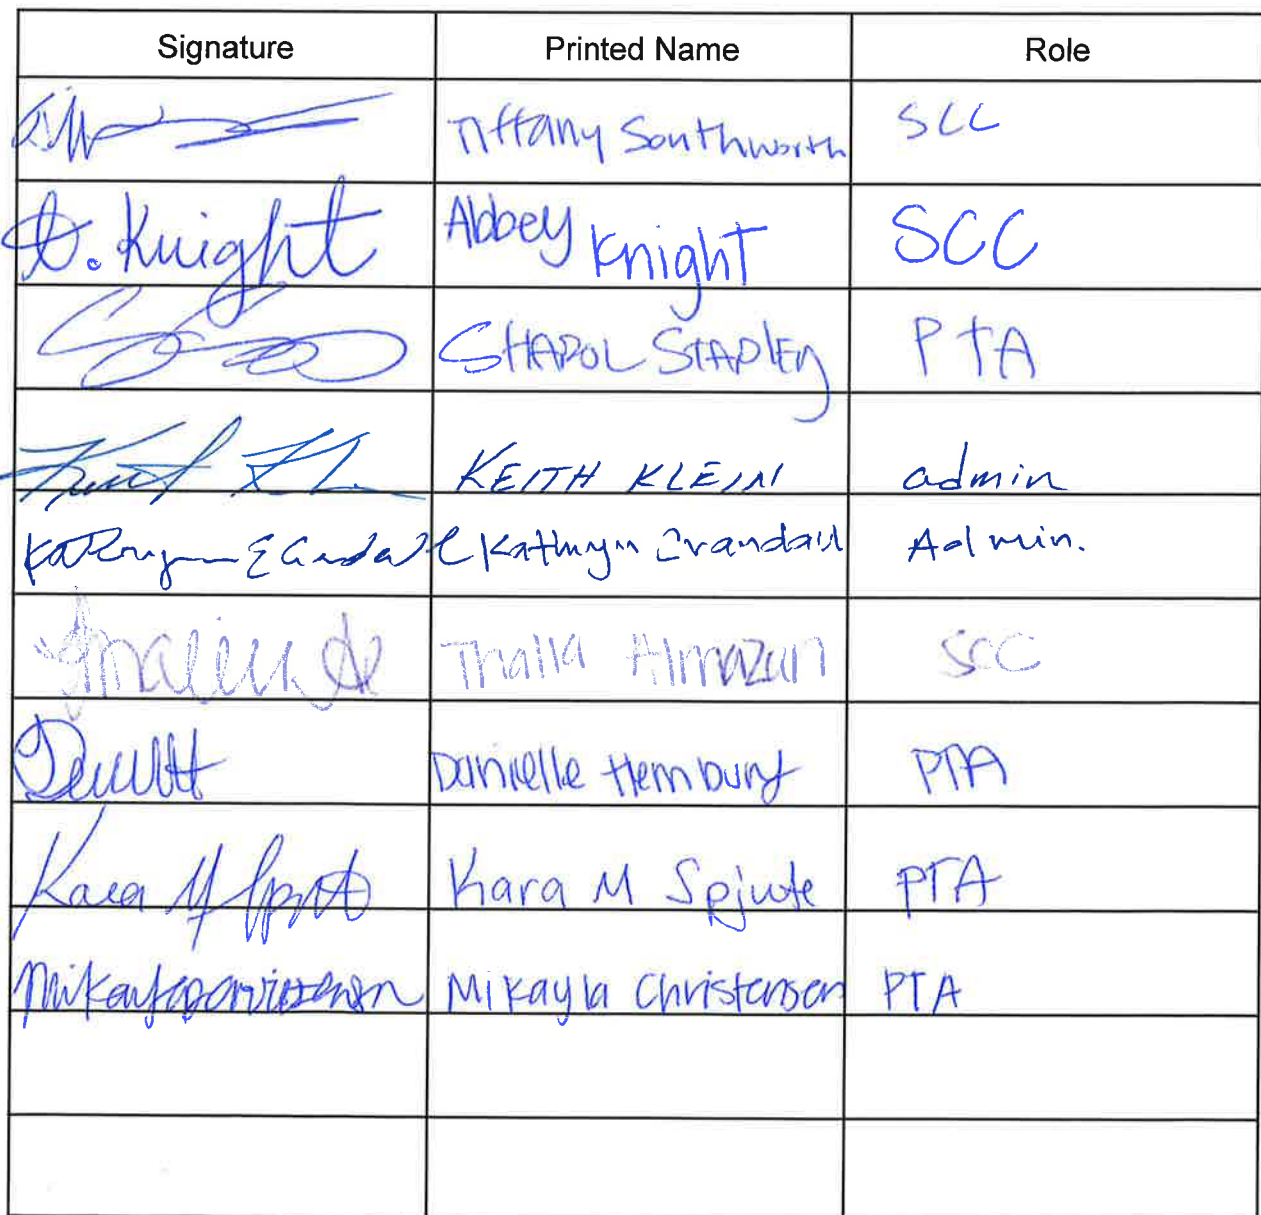 Signature Printed Name Role
Tiffany Southworth SCC
A. Knight Abbey Knight SCC
SHAROL STAPLEY PTA
KEITH KLEIN admin
Kathryn E Crandall Kathryn Crandall Admin.
Thalia Almazan SCC
Danielle Hemburg PTA
Kara M Spjute Kara M Spjute PTA
Mikayla Christensen Mikayla Christensen PTA